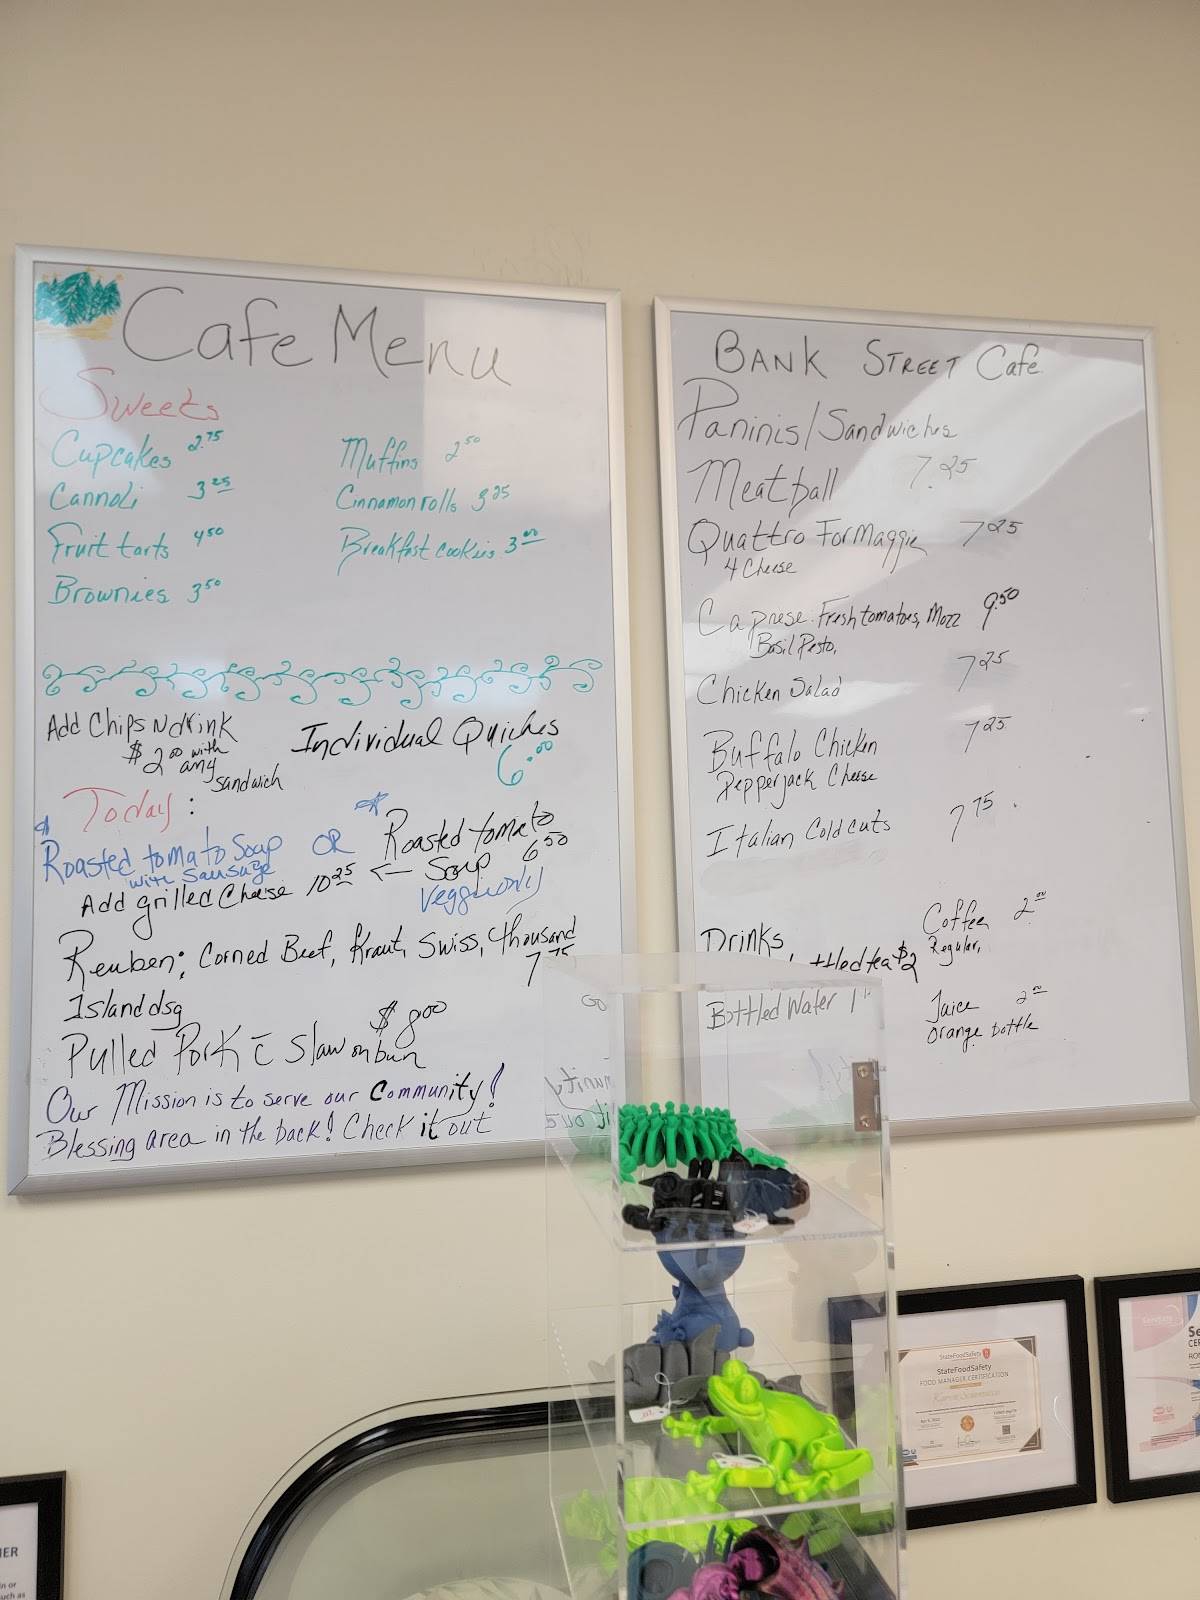 Cafe Menu
Sweets
Cupcakes 2.75
Muffins 2 50
Cannoli 3 25
Cinnamon rolls 3 25
Fruit tarts 4 50
Breakfast cookies 3 00
Brownies 3 50
Add Chips N drink
$2 00 with
any
sandwich
Individual Quiches
6.00
Today:
Roasted tomato Soup
with Sausage
OR
Roasted tomato
Soup 6 50
Veggie only
Add grilled Cheese 10 25 ←
Reuben: Corned Beef, Kraut, Swiss, thousand
7 75
Island dsg
Pulled Pork c̄ Slaw on bun
$8 00
Our Mission is to serve our Community!
Blessing area in the back! Check it out
BANK STREET Cafe
Paninis/Sandwiches
Meatball 7.25
Quattro Formaggie 7 25
4 Cheese
Caprese: Fresh tomatoes, Mozz 9.50
Basil Pesto,
Chicken Salad 7 25
Buffalo Chicken 7 25
Pepperjack Cheese
Italian Cold cuts 7 75
Drinks
ttled tea $2
Bottled Water 1
Coffee 2 00
Regular,
Juice 2 00
Orange bottle
StateFoodSafety
StateFoodSafety
FOOD MANAGER CERTIFICATION